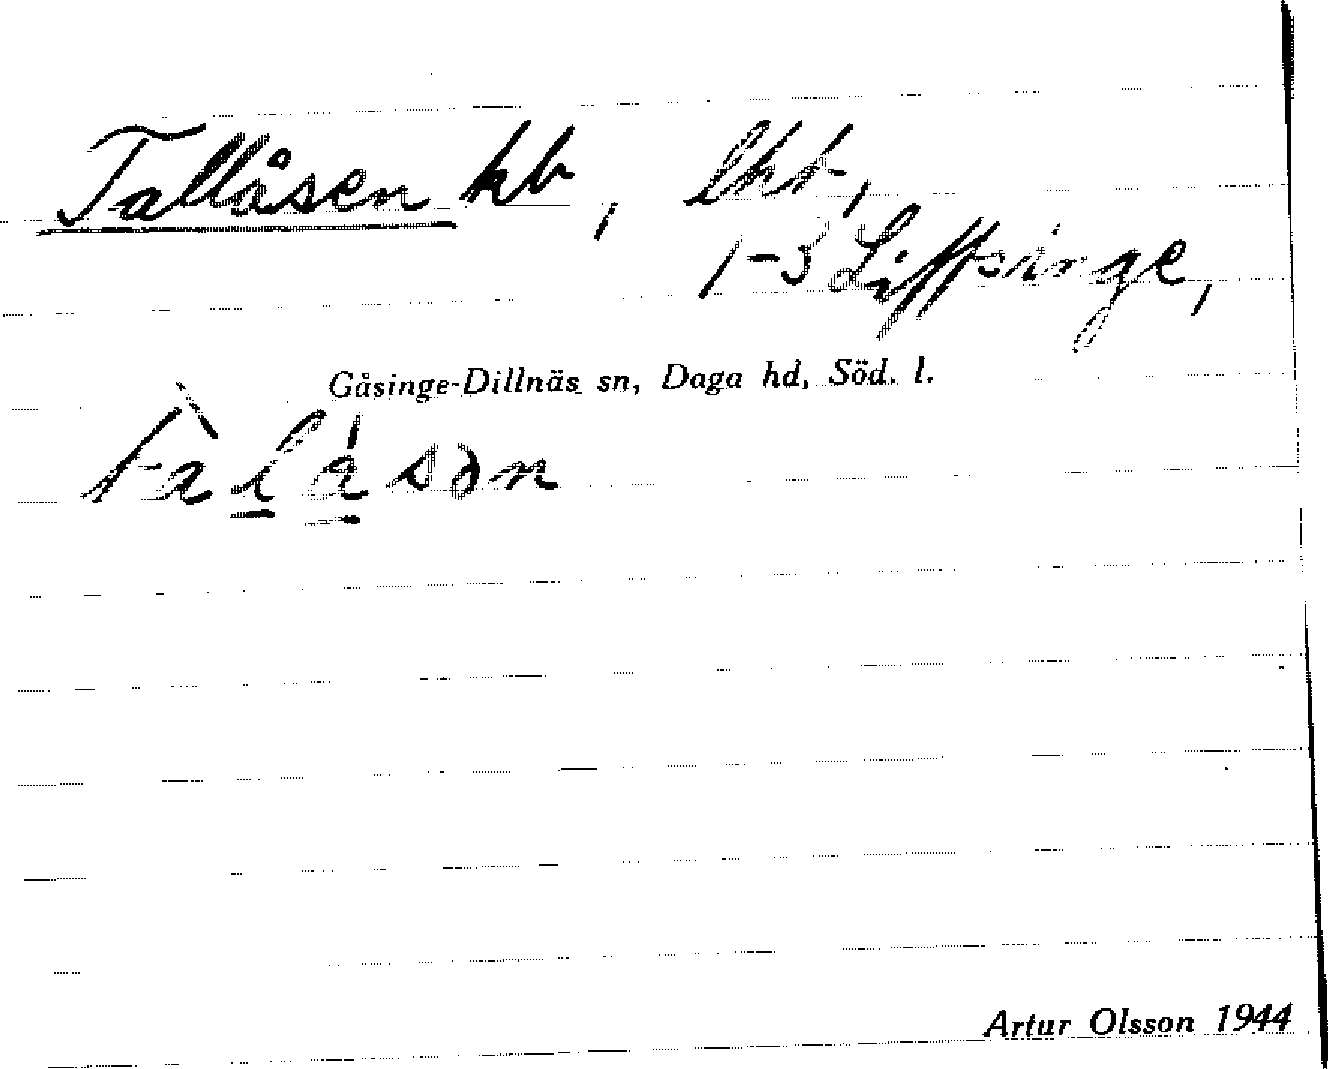 Tallåsen hb, lht,
1-3 Liffsinge,
Gåsinge-Dillnäs sn, Daga hd, Söd. l.
Artur Olsson 1944